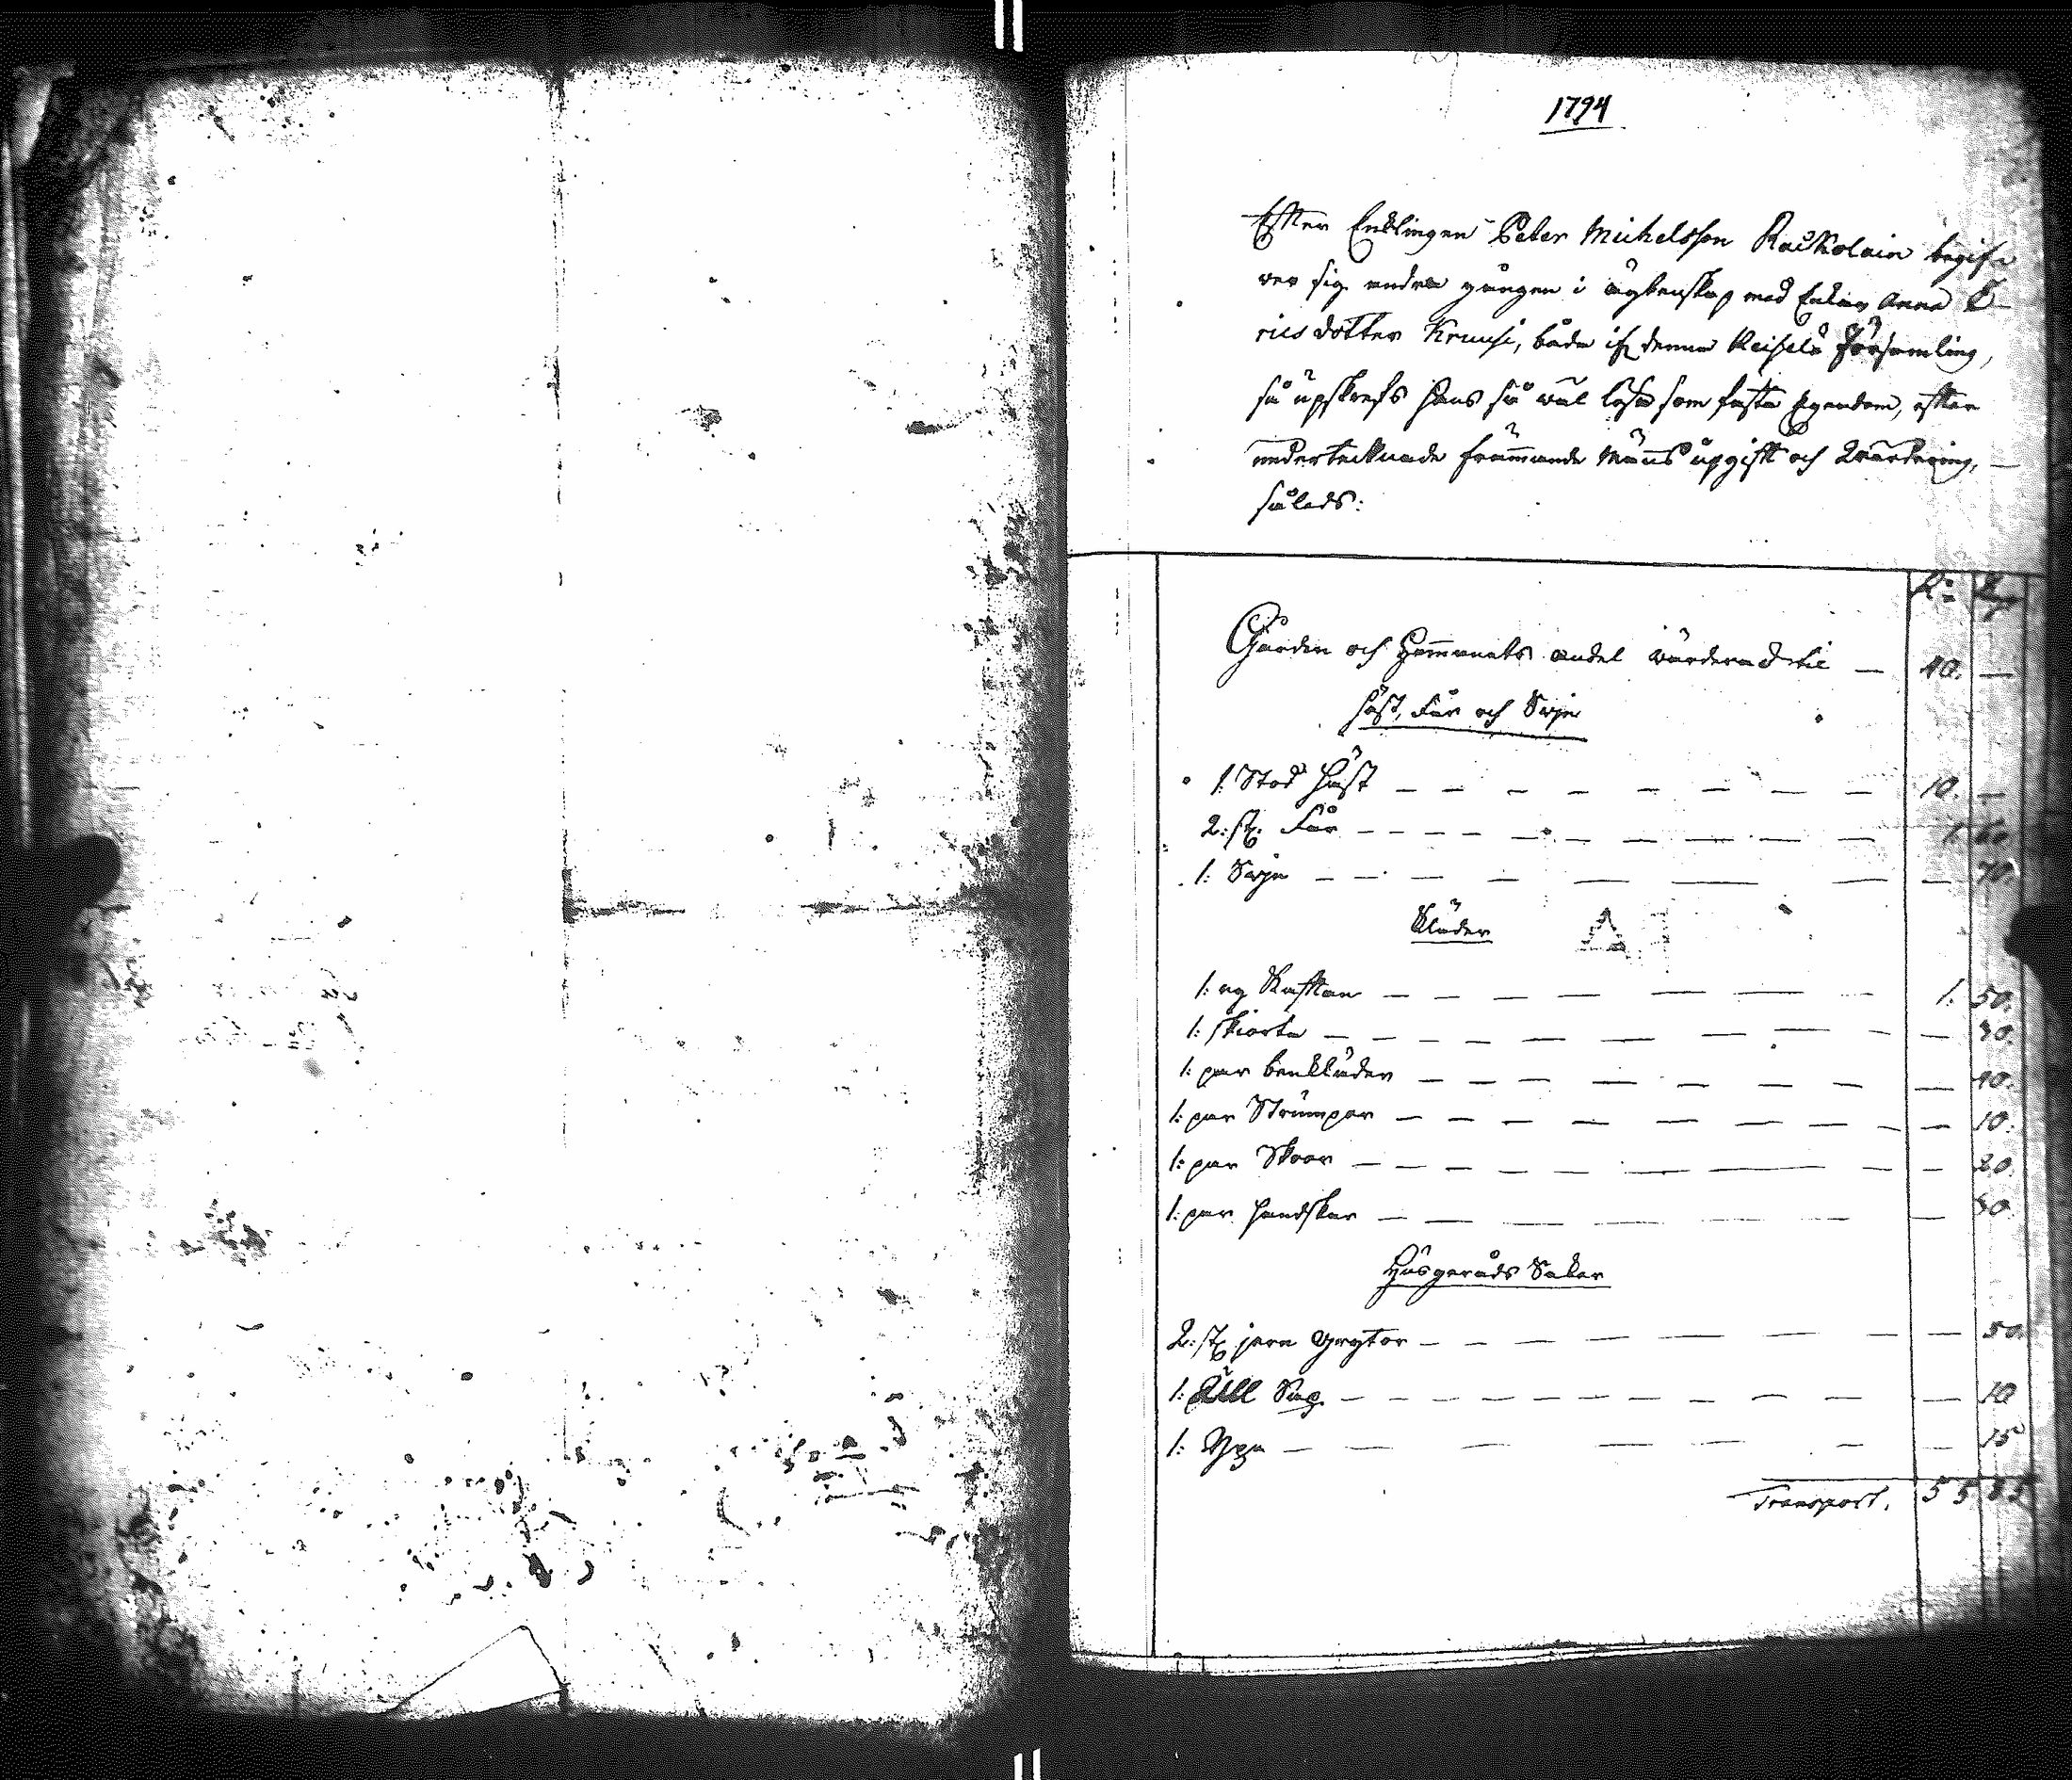 1794
Efter Enklingen Peter Michelsson Raukolain begif-
ver sig andra gången i ägtenskap med Enkan Anna E-
ricsdotter Kruusi, båda if denna Reiselä Församling,
så upskrefs Hans så wäl lösa som fasta Egendom, efter
undertecknade främmande Mäns upgift och Wärdering,
såleds:
R: K
Gården och Hemmanets andel wärderad til — 40. —
Häst, Får och Swin
1 Stod Häst — 10. —
2: st. Får — 1. 60.
1: Swin — 70.
Kläder
1: ny Kaftan — 1. 50.
1: skiorta — 30.
1: par benkläder — 40.
1: par Strumpor — 10.
1: par Skoor — 20.
1: par Handskar — 30.
Husgeråds Saker
2: st. jern Grytor — 50.
1: Såg — 10
1: Yxa — 15
Transport. 55 35